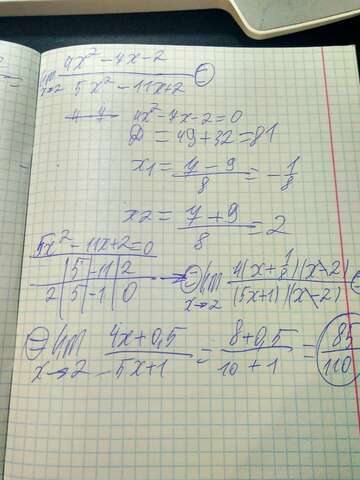 lim x→2 (4x² - 7x - 2) / (5x² - 11x + 2) =
4x² - 7x - 2 = 0
D = 49 + 32 = 81
x1 = (7 - 9) / 8 = - 1/8
x2 = (7 + 9) / 8 = 2
5x² - 11x + 2 = 0
5 | -11 | 2
2 | 5 | -1 | 0
= lim x→2 (x - 2) / (5x + 1)(x - 2) =
= lim x→2 (4x + 0,5) / (5x + 1) = (8 + 0,5) / (10 + 1) = 85 / 110